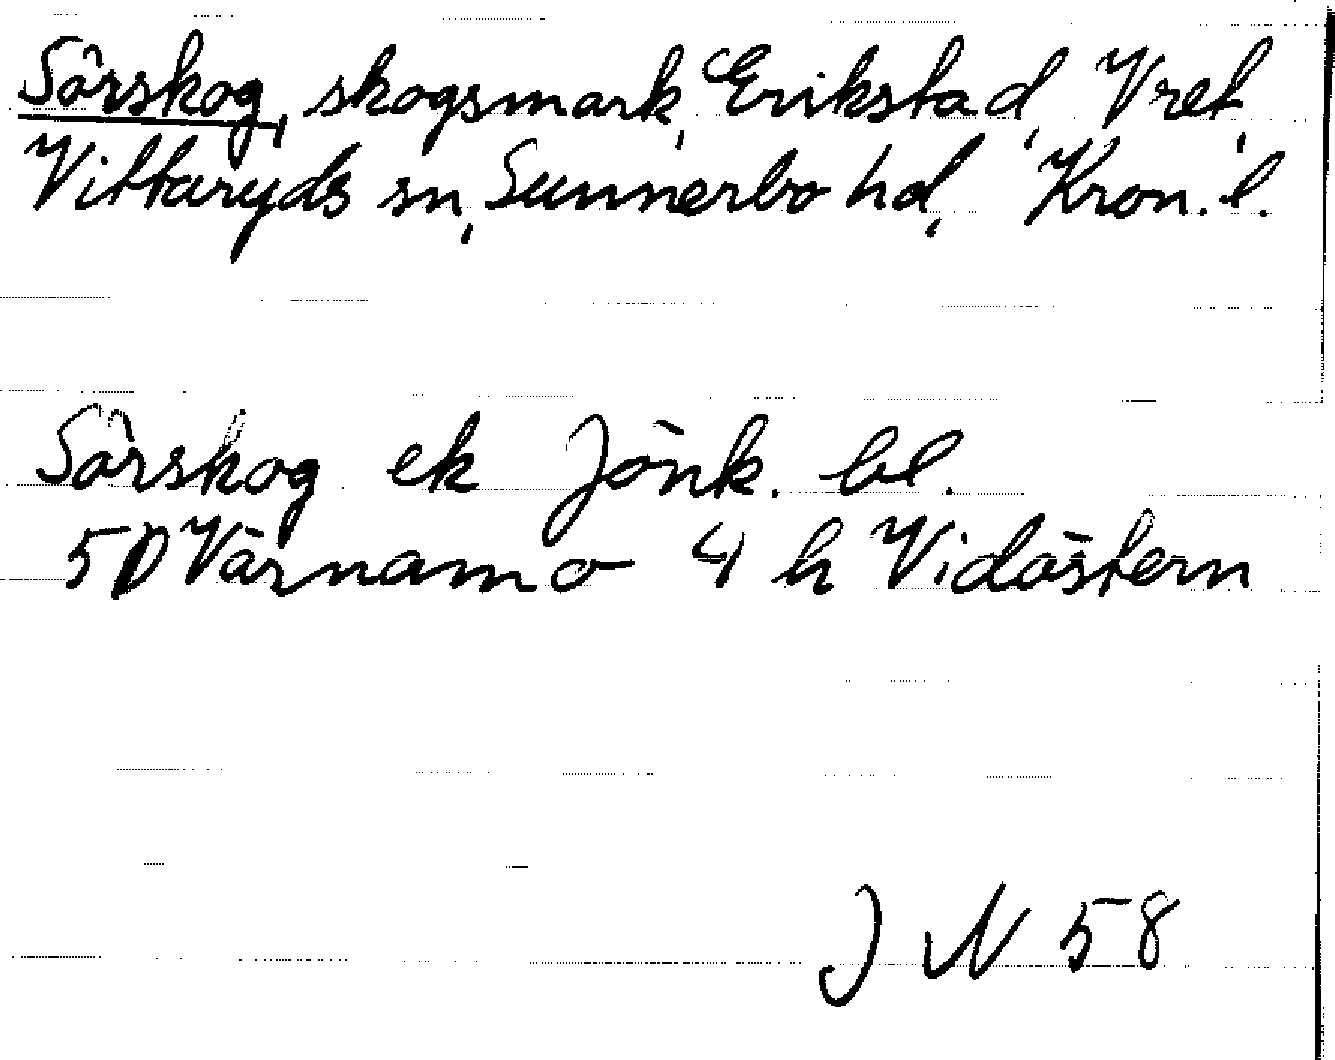 Sörskog, skogsmark, Erikstad, Vret,
Vittaryds sn, Sunnerbo hd, Kron. l.
Sörskog ek Jönk. bl.
5D Värnamo 4 h Vidöstern
J N 58